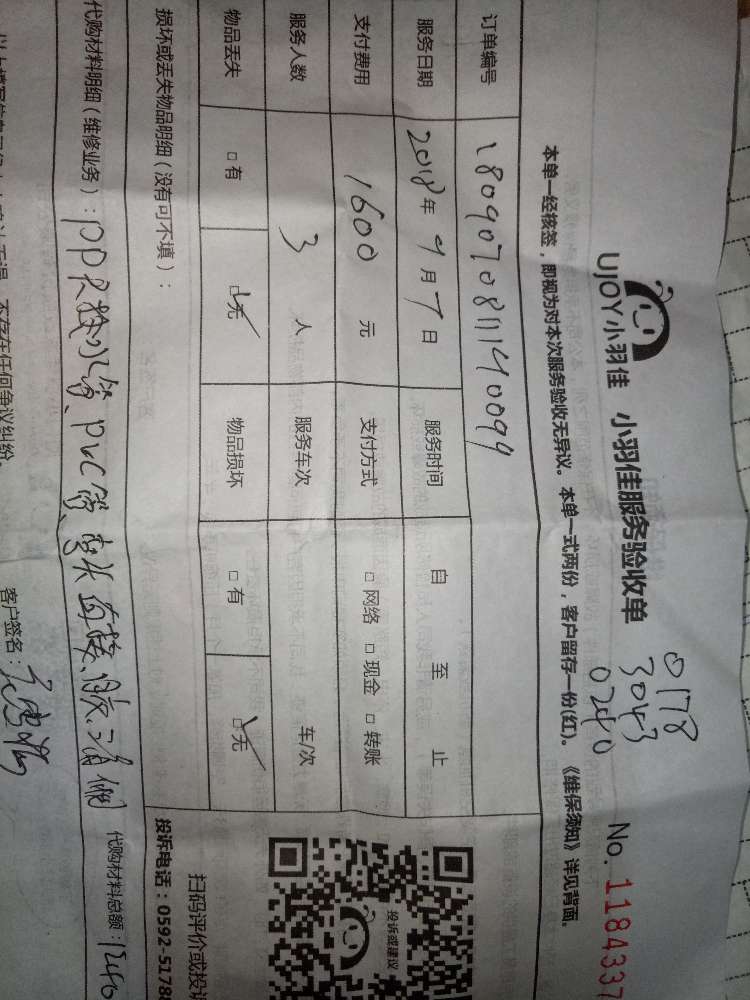 UJOY小羽佳 小羽佳服务验收单
0178
3043
0240
No. 1184337
本单一经核签，即视为对本次服务验收无异议。本单一式两份，客户留存一份(红)。《维保须知》详见背面。
订单编号 180907081140099
服务日期 2018年9月7日 服务时间 自 至 止
支付费用 1600 元 支付方式 □网络 □现金 □转账
服务人数 3 人 服务车次 车/次
物品丢失 □有 □无 物品损坏 □有 □无
损坏或丢失物品明细（没有可不填）：
投诉或建议
扫码评价或投诉
投诉电话：0592-5178
代购材料明细（维修业务）：PPR热水管、PVC管、弯头直接、胶 代购材料总额：1240
不存在任何争议纠纷。 客户签名：